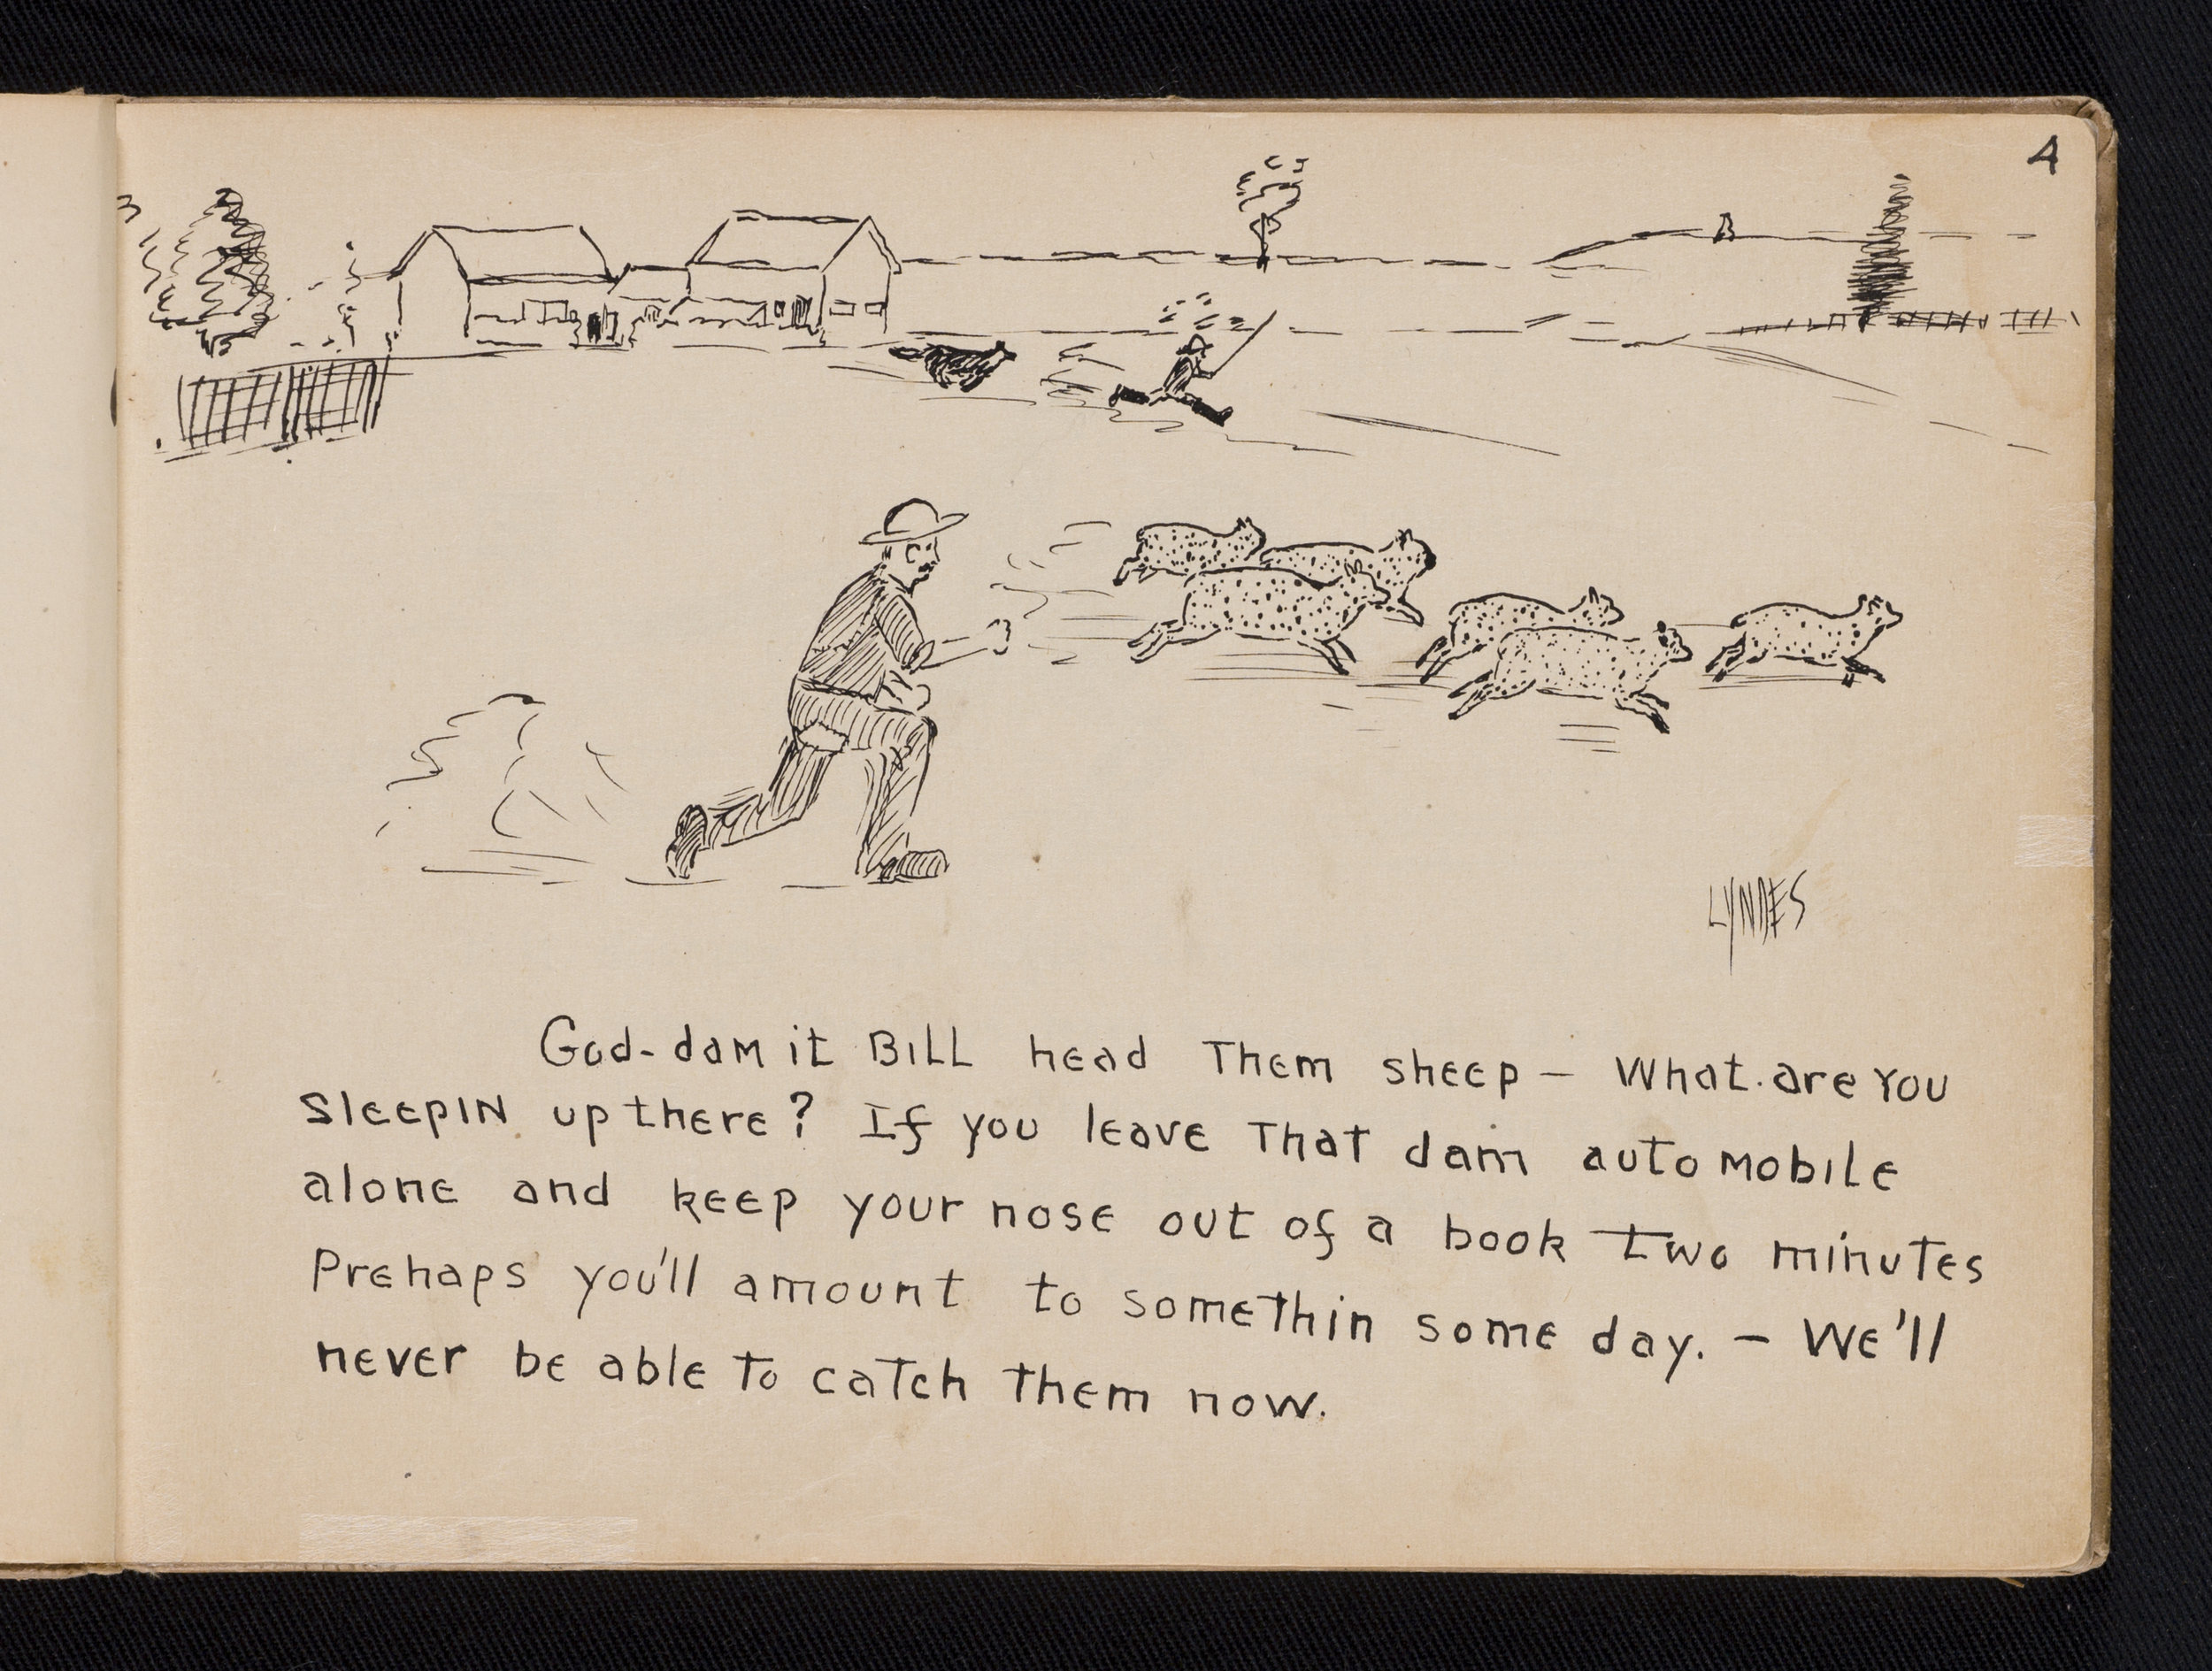 4
LYNDES
God-dam it BILL head Them sheep – What are You
sleepIN up there? If you leave That dam automobile
alone and keep your nose out of a book two minutes
Prehaps you'll amount to somethin some day. – We'll
never be able to catch them now.